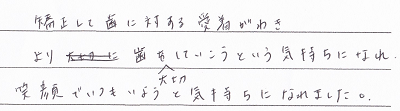 矯正して歯に対する愛着がわき
より歯を大切していこうという気持ちになれ
笑顔でいつもいようと気持ちになれました。